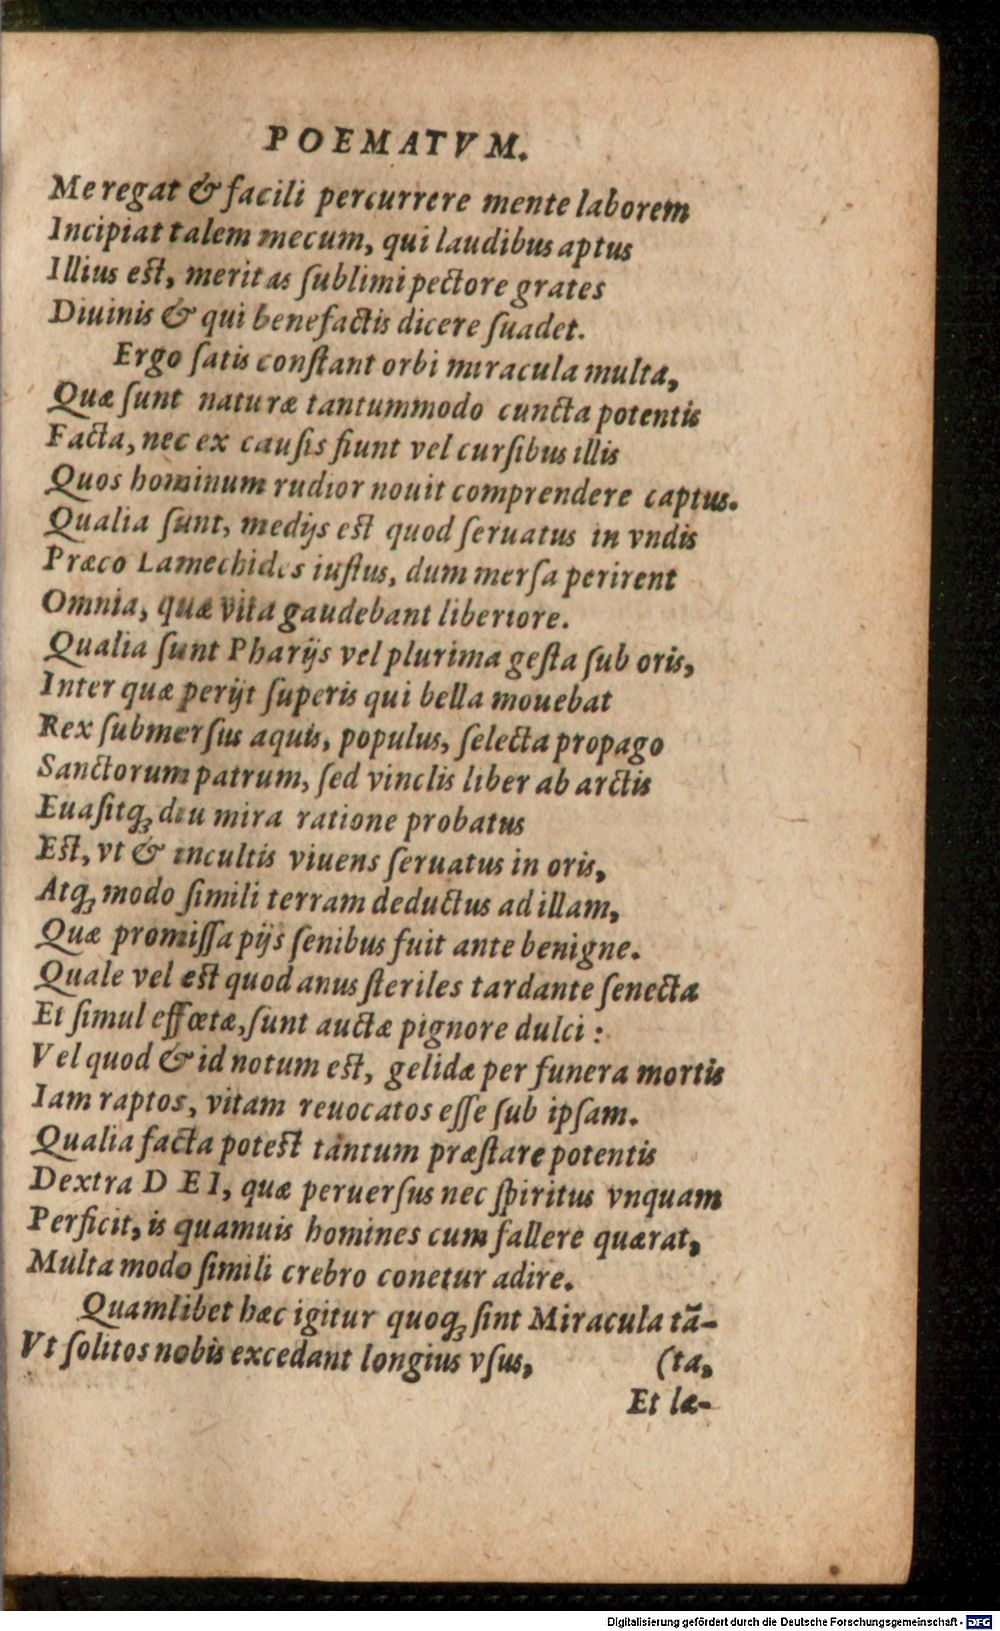 POEMATVM.
Me regat & facili percurrere mente laborem
Incipiat talem mecum, qui laudibus aptus
Illius est, meritas ſublimi pectore grates
Diuinis & qui benefactis dicere ſuadet.
Ergo ſatis conſtant orbi miracula multa,
Quæ ſunt naturæ tantummodo cuncta potentis
Facta, nec ex cauſis fiunt vel curſibus illis
Quos hominum rudior nouit comprendere captus.
Qualia ſunt, medijs est quod ſeruatus in vndis
Præco Lamechides iuſtus, dum merſa perirent
Omnia, quæ vita gaudebant liberiore.
Qualia ſunt Pharijs vel plurima geſta ſub oris,
Inter quæ perijt ſuperis qui bella mouebat
Rex ſubmerſus aquis, populus, ſelecta propago
Sanctorum patrum, ſed vinclis liber ab arctis
Euaſitq́ꝫ diu mira ratione probatus
Est, vt & incultis viuens ſeruatus in oris,
Atqꝫ modo ſimili terram deductus ad illam,
Quæ promiſſa pijs ſenibus fuit ante benigne.
Quale vel est quod anus ſteriles tardante ſenecta
Et ſimul effœtæ, ſunt auctæ pignore dulci:
Vel quod & id notum est, gelidæ per funera mortis
Iam raptos, vitam reuocatos eſſe ſub ipſam.
Qualia facta potest tantum præſtare potentis
Dextra DEI, quæ peruerſus nec ſpiritus vnquam
Perficit, is quamuis homines cum fallere quærat,
Multa modo ſimili crebro conetur adire.
Quamlibet hæc igitur quoqꝫ ſint Miracula tã-
Vt ſolitos nobis excedant longius vſus, (ta,
Et læ-
Digitalisierung gefördert durch die Deutsche Forschungsgemeinschaft - DFG